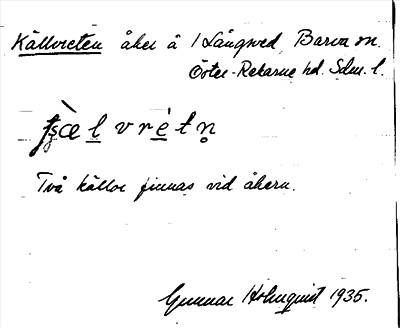 Källvreten åker å 1 Långved, Barva sn.
Öster-Rekarne hd. Sdm. l.
Två källor finnas vid åkern.
Gunnar Holmquist 1935.